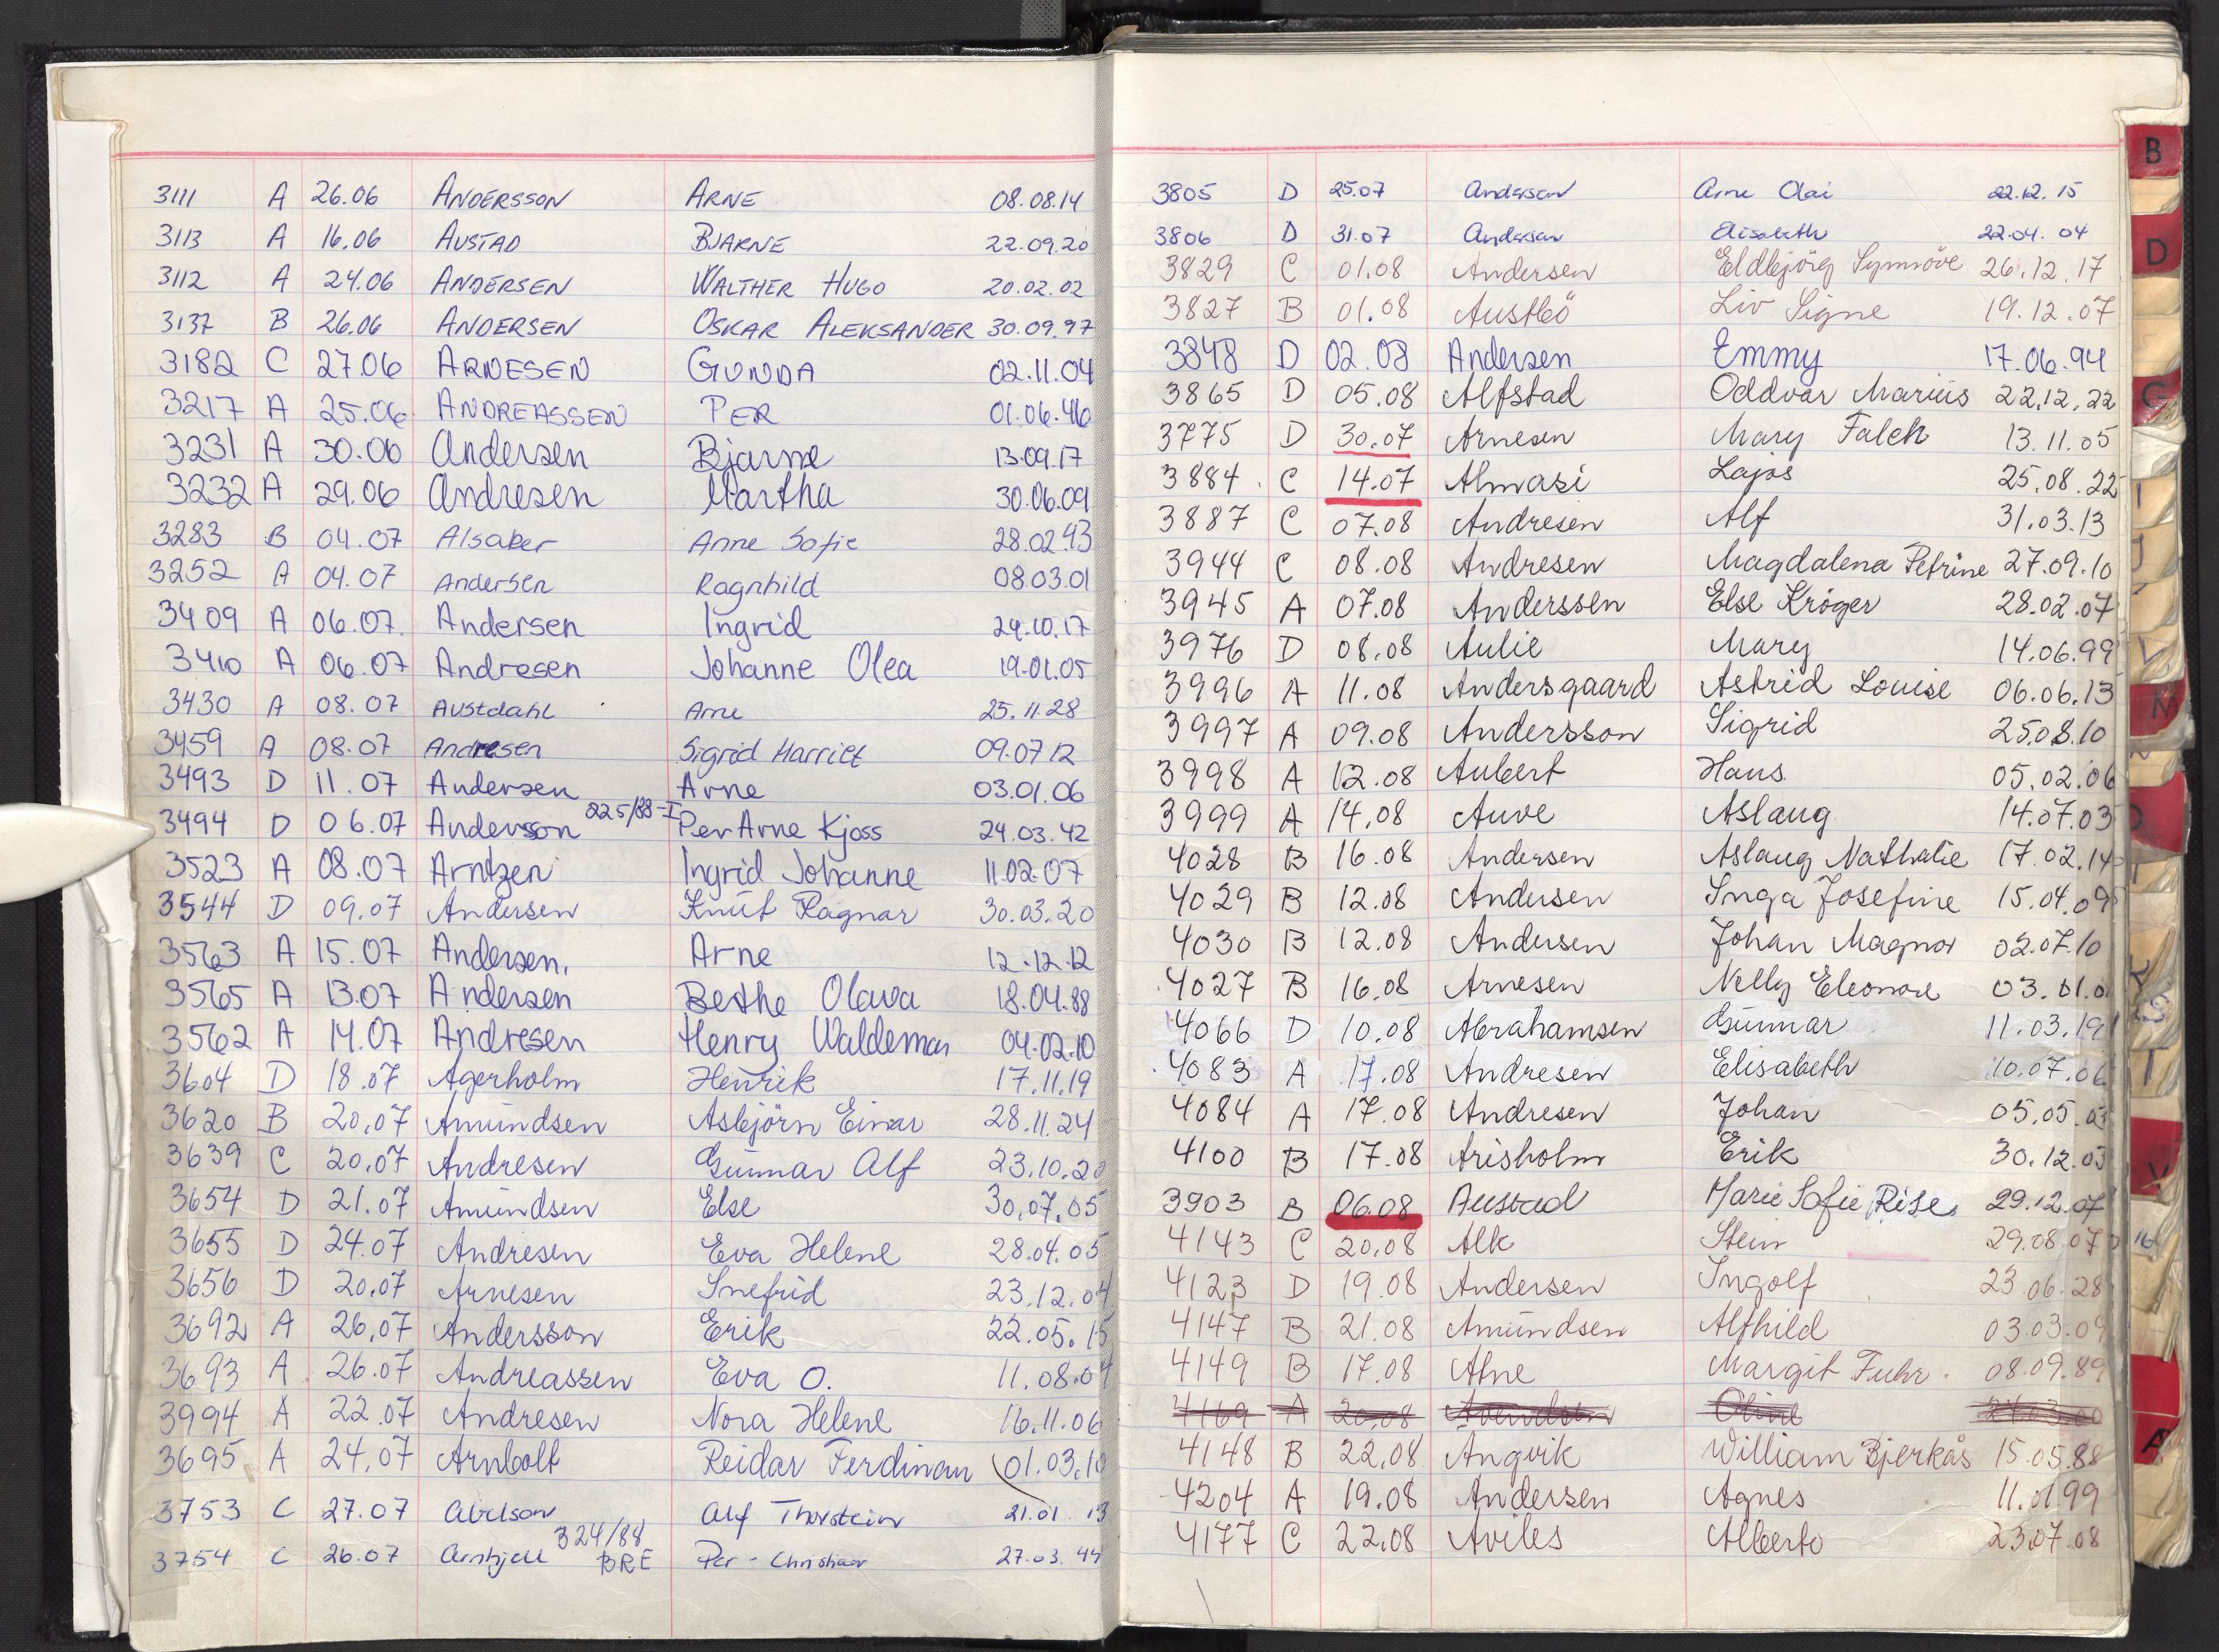 3111 A 26.06 ANDERSSON ARNE 08.08.14
3113 A 16.06 AUSTAD BJARNE 22.09.20
3112 A 24.06 ANDERSEN WALTHER HUGO 20.02.02
3137 B 26.06 ANDERSEN OSKAR ALEKSANDER 30.09.97
3182 C 27.06 ARNESEN GUNDA 02.11.04
3217 A 25.06 ANDREASSEN PER 01.06.46
3231 A 30.06 Andersen Bjarne 13.09.17
3232 A 29.06 Andresen Martha 30.06.09
3283 B 04.07 Alsaker Anne Sofie 28.02.43
3252 A 04.07 Andersen Ragnhild 08.03.01
3409 A 06.07. Andersen Ingrid 24.10.17
3410 A 06.07 Andresen Johanne Olea 19.01.05
3430 A 08.07 Austdahl Arne 25.11.28
3459 A 08.07 Andresen Sigrid Harriet 09.07 12
3493 D 11.07 Andersen Arne 03.01.06
3494 D 06.07 Andersson 225/88-I Per Arne Kjoss 24.03.42
3523 A 08.07 Arntzen Ingrid Johanne 11.02.07
3544 D 09.07 Andersen Knut Ragnar 30.03.20
3563 A 15.07 Andersen. Arne 12.12.12
3565 A 13.07 Andersen Bethe Olava 18.04.88
3562 A 14.07 Andresen Henry Waldemar 04.02.10
3604 D 18.07 Agerholm Henrik 17.11.19
3620 B 20,07 Amundsen Asbjörn Einar 28.11.24
3639 C 20,07 Andresen Gunnar Alf 23.10.20
3654 D 21.07 Amundsen Else 30,07.05
3655 D 24.07 Andresen Eva Helene 28.04.05
3656 D 20.07 Arnesen Snefrid 23.12.04
3692 A 26,07 Andersson Erik 22.05.15
3693 A 26.07 Andreassen Eva O. 11.08.04
3994 A 22.07 Andresen Nora Helene 16.11.06
3695 A 24,07 Arnbolt Reidar Ferdinan 01.03.10
3753 C 27.07 Abelson Alf Thorstein 21.01 13
3754 C 26.07 Arnkjell 324/88 BRE Per-Christian 27.03.44
3805 D 25.07 Andersen Arne Olai 22.12.15
3806 D 31.07 Andersen Elisabeth 22.04.04
3829 C 01.08 Andersen Eldbjörg Synnöve 26.12.17
3827 B 01.08 Austbö Liv Signe 19.12.07
3848 D 02.08 Andersen Emmy 17.06.94
3865 D 05.08 Alfstad Oddvar Marius 22.12.22
3775 D 30.07 Arnesen Mary Falch 13.11.05
3884 C 14.07 Almasi Lajos 25.08.22
3887 C 07.08 Andresen Alf 31.03.13
3944 C 08.08 Andresen Magdalena Petrine 27.09.10
3945 A 07.08 Anderssen Else Kröger 28.02.07
3976 D 08.08 Aulie Mary 14.06.99
3996 A 11.08 Andersgaard Astrid Louise 06.06.13
3997 A 09.08 Andersson Sigrid 25.08.10
3998 A 12.08 Aubert Hans 05.02.06
3999 A 14,08 Auve Aslaug 14.07.03
4028 B 16.08 Andersen Aslaug Nathalie 17.02.14
4029 B 12.08 Andersen Inga Josefine 15.04.09
4030 B 12.08 Andersen Johan Magnor 02.07.10
4027 B 16,08 Arnesen Nelly Eleonore 03.01.0
4066 D 10.08 Abrahamsen Gunnar 11.03.19
4083 A 17.08 Andresen Elisabeth 10.07.06
4084 A 17.08 Andresen Johan 05.05.03
4100 B 17.08 Arisholm Erik 30.12.03
3903 B 06.08 Austad Marie Sofie Rise 29.12.07
4143 C 20,08 Alk Stein 29.08.07
4123 D 19.08 Andersen Ingolf 23.06.28
4147 B 21.08 Amundsen Alfhild 03.03.09
4149 B 17.08 Alne Margit Fuhr 08.09.89
4169 A 20,08 Oline 24.03.00
4148 B 22,08 Angvik William Bjerkås 15.05.88
4204 A 19.08 Andersen Agnes 11.01.99
4177 C 22.08 Aviles Alberto 23.07.08
B
D
G
I
J
M
V
A